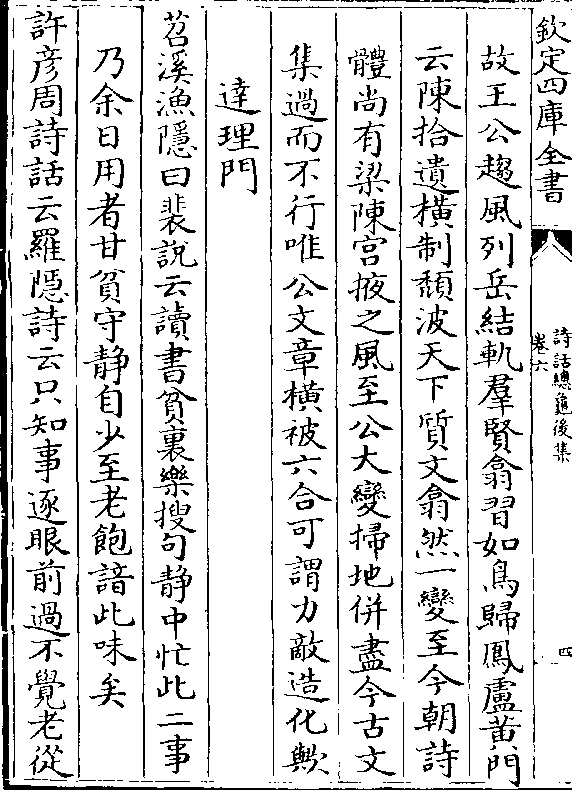 欽定四庫全書
詩話總龜後集
卷六
四
故王公趨風列岳結軌羣賢翕習如鳥歸鳳盧黄門
云陳拾遺横制頽波天下質文翕然一變至今朝詩
體尚有梁陳宫掖之風至公大變掃地併盡今古文
集遏而不行唯公文章横被六合可謂力敵造化歟
達理門
苕溪漁隱曰裴説云讀書貧裏樂搜句静中忙此二事
乃余日用者甘貧守静自少至老飽諳此味矣
許彦周詩話云羅隠詩云只知事逐眼前過不覺老從